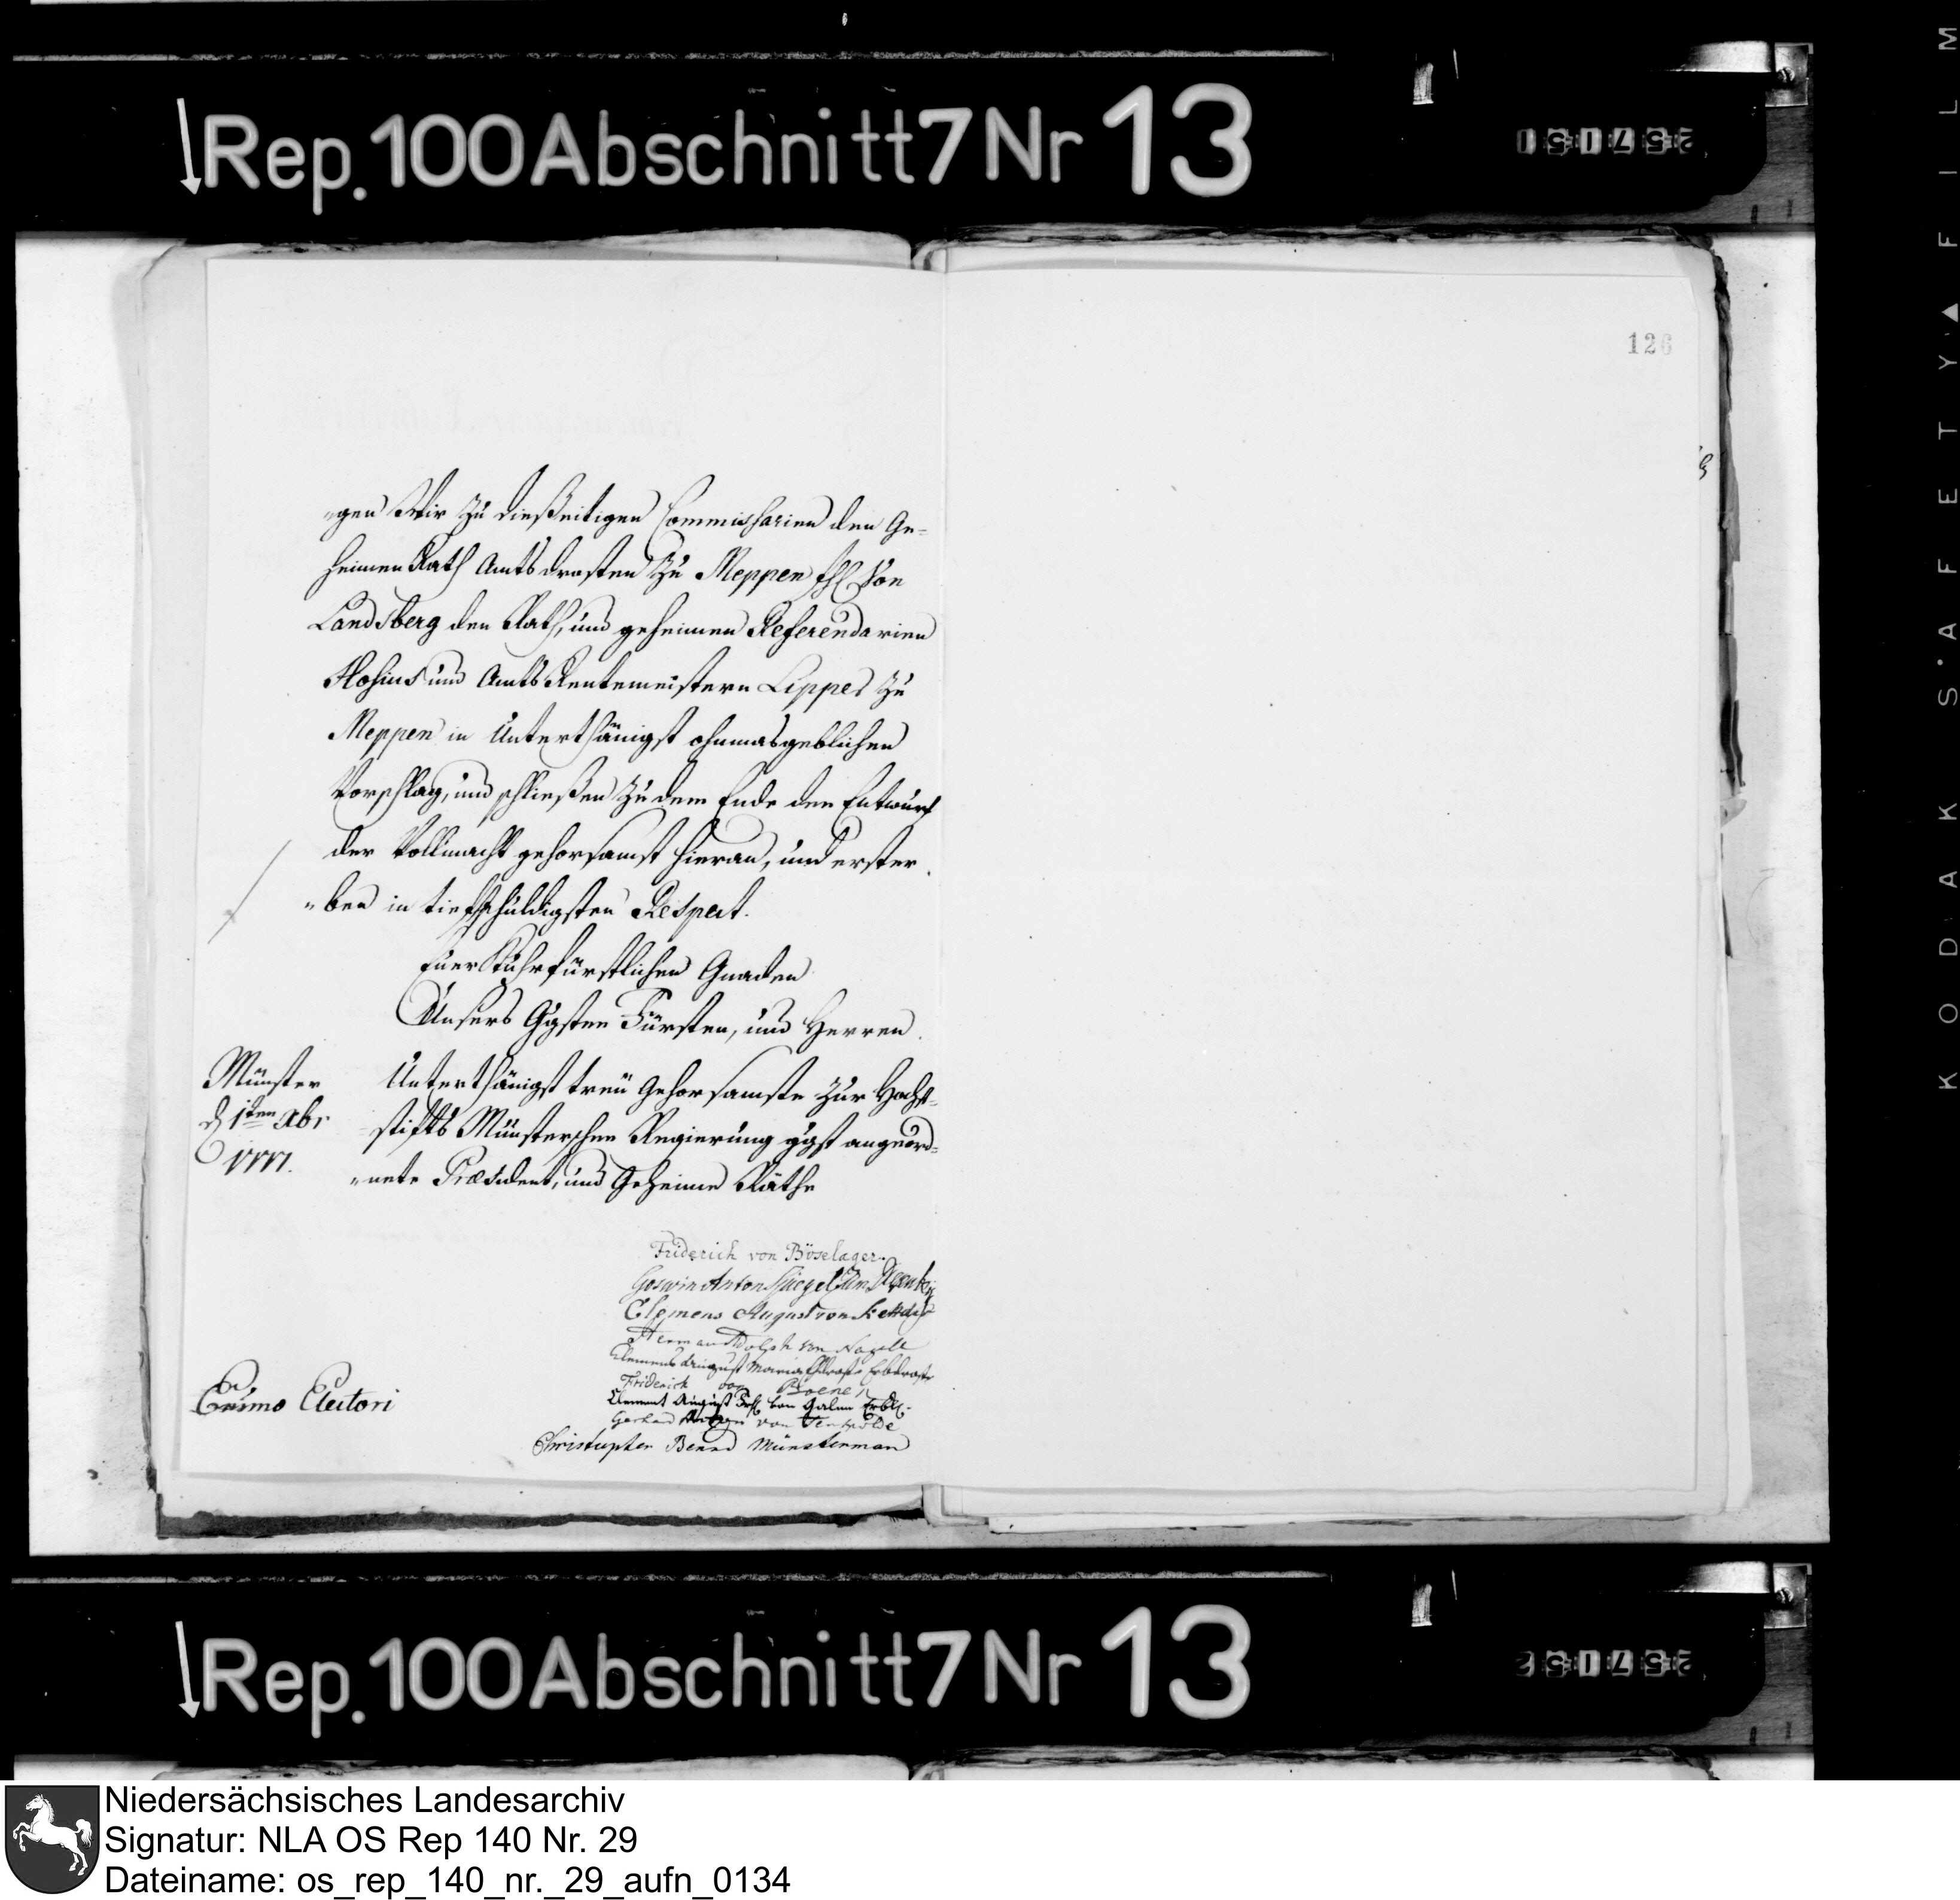 Rep. 100 Abschnitt 7 Nr 13
257151
126
"gen Wir zu dießeitigen Commissarien den Ge-
heimen Rath Amtsdrosten zu Meppen von
Landsberg den Rath, und geheimen Referendarien
Hosius und Amts Rentemeistern Lippes zu
Meppen in Unterthänigst ohnmasgeblichen
Vorschlag, und schließen zu dem Ende den Entwurf
der Vollmacht gehorsamst hieran, und erster
"ben in tiefschuldigsten Respect.
Euer Kuhrfürstlichen Gnaden
Unsers Ggsten Fürsten, und Herren.
Münster
d 1ten xbr
1777.
Unterthänigst treü gehorsamste zur Hoch-
stifts Münsterschen Regierung ggst angeord-
"nete Præsident, und Geheime Räthe
Friderich von Böselager
Goswin Anton Spiegel zum
Clemens August von Ketteler
Herman Adolph von Nagell
Clemens August Maria Erbdroste
Friderich von Boenen
Clement August von Galen
Gerhard von
Christopher Bernd Münsterman
Emo Electori
KODAK SAFETY FILM
Rep. 100 Abschnitt 7 Nr 13
257152
Niedersächsisches Landesarchiv
Signatur: NLA OS Rep 140 Nr. 29
Dateiname: os_rep_140_nr._29_aufn_0134